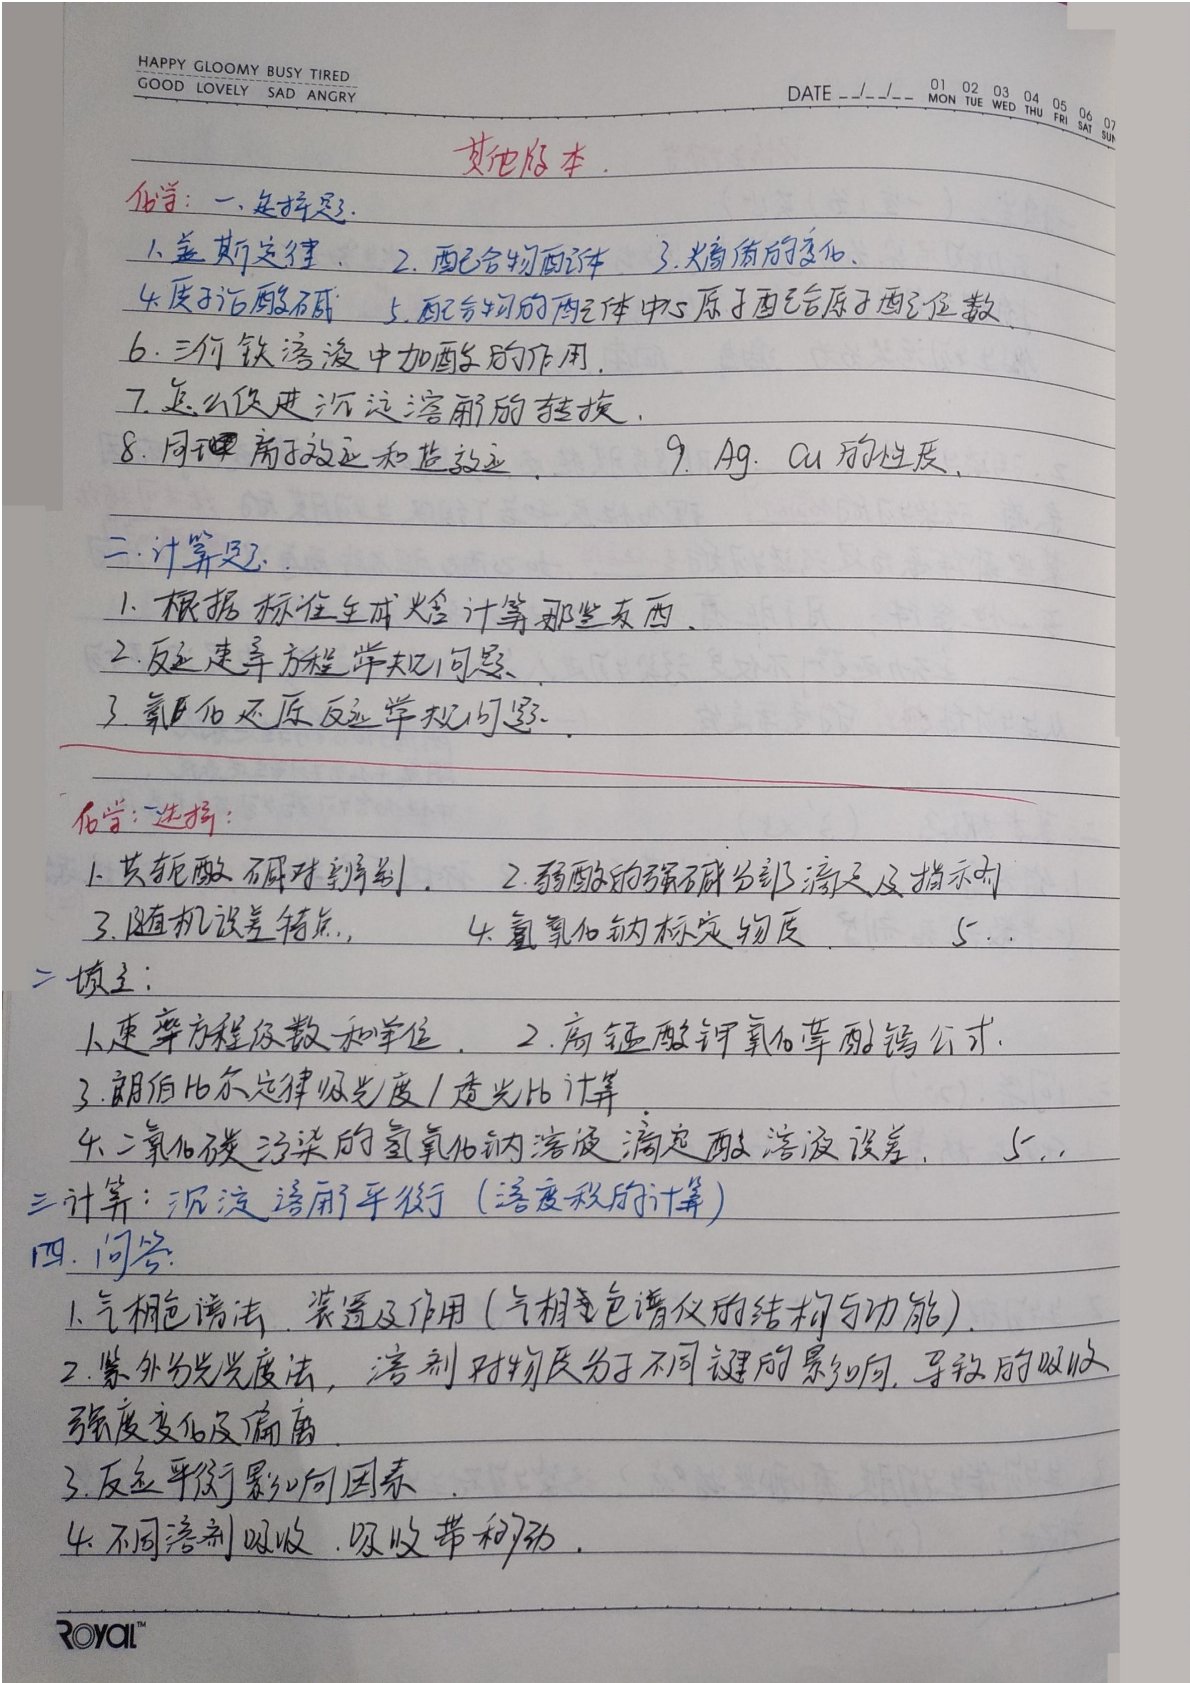 HAPPY GLOOMY BUSY TIRED
GOOD LOVELY SAD ANGRY
DATE __/__/__ 01 MON 02 TUE 03 WED 04 THU 05 FRI 06 SAT 07 SUN
其他版本.
化学：一、选择题.
1.盖斯定律. 2.配合物配体 3.熵值的变化.
4.质子论酸碱 5.配合物的配体中心原子配合原子配位数.
6.三价铁溶液中加酸的作用.
7.怎么促进沉淀溶解的转换.
8.同 离子效应和盐效应. 9. Ag. Cu 的性质.
二.计算题.
1.根据标准生成焓计算那些东西.
2.反应速率方程常规问题.
3.氧化还原反应常规问题.
化学:一选择:
1.共轭酸碱对辨别. 2.弱酸的强碱分部滴定及指示剂
3.随机误差特点, 4.氢氧化钠标定物质. 5..
二 填空:
1.速率方程级数和单位. 2.高锰酸钾氧化草酸钙公式.
3.朗伯比尔定律吸光度/透光比计算.
4.二氧化碳污染的氢氧化钠溶液滴定酸溶液误差. 5..
三计算：沉淀溶解平衡（溶度积的计算）
四.问答:
1.气相色谱法.装置及作用(气相色谱仪的结构与功能).
2.紫外分光光度法, 溶剂对物质分子不同键的影响,导致的吸收
强度变化及偏离.
3.反应平衡影响因素.
4.不同溶剂吸收.吸收带移动.
ROYAL™